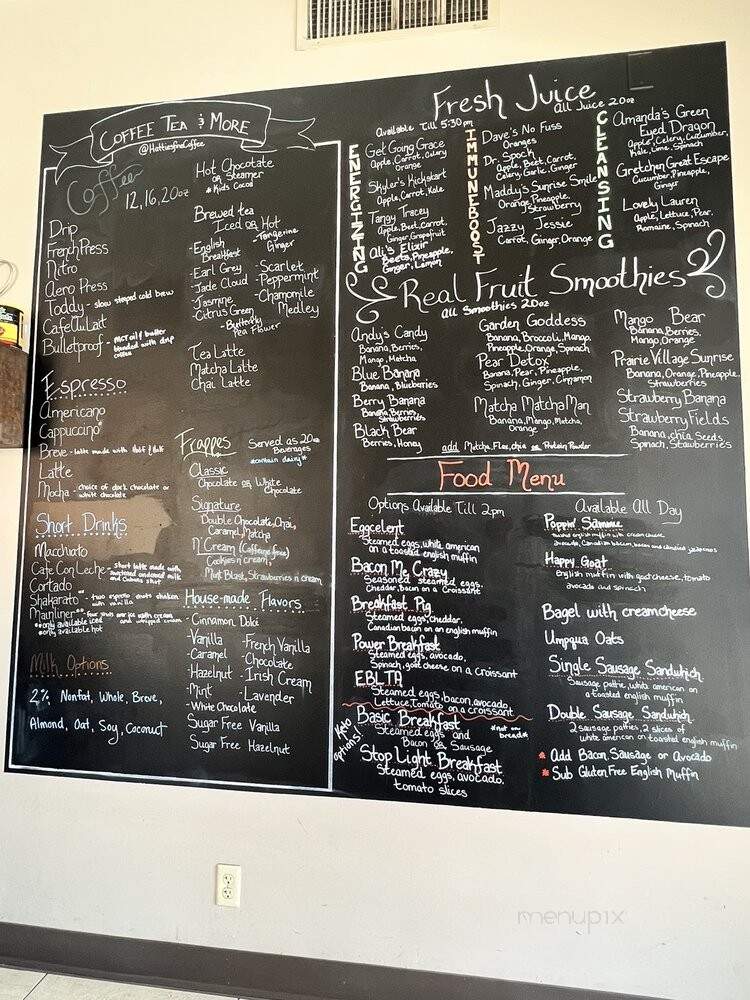 COFFEE TEA & MORE
@HattiesfineCoffee
Coffee
12, 16, 20oz
Drip
French Press
Nitro
Aero Press
Toddy - slow steeped cold brew
Cafe Au Lait
Bulletproof - MCT oil / butter
blended with drip
coffee
Hot Chocolate
or Steamer
* Kids Cocoa
Brewed tea
Iced or Hot
- English
Breakfast
- Earl Grey
- Jade Cloud
- Jasmine
- Citrus Green
- Tangerine
Ginger
- Scarlet
- Peppermint
- Chamomile
Medley
- Butterfly
Pea Flower
Tea Latte
Matcha Latte
Chai Latte
Espresso
Americano
Cappuccino*
Breve - latte made with Half / Half
Latte
Mocha - choice of dark chocolate or
white chocolate
Short Drinks
Macchiato
Cafe Con Leche - Short latte made with
sweetened condensed milk
and Cubano shot
Cortado
Shakarato** - two espresso shots shaken
with vanilla
Mainliner** - four shots over ice with cream
and whipped cream
*only available iced
*only available hot
Milk Options
2%, Nonfat, Whole, Breve,
Almond, Oat, Soy, Coconut
Frappes
Served as 20oz
Beverages
*contain dairy*
Classic
Chocolate or White
Chocolate
Signature
Double Chocolate, Chai,
Caramel, Matcha
N' Cream (Caffeine free)
Cookies n cream,
Mint Blast, Strawberries n cream
House-made Flavors
- Cinnamon Dolci
- Vanilla
- Caramel
- Hazelnut
- Mint
- White Chocolate
- French Vanilla
- Chocolate
- Irish Cream
- Lavender
Sugar Free Vanilla
Sugar Free Hazelnut
Fresh Juice
All Juice 20oz
Available Till 5:30pm
ENERGIZING
Get Going Grace
Apple, Carrot, Celery
Orange
Skyler's Kickstart
Apple, Carrot, Kale
Tangy Tracey
Apple, Beet, Carrot,
Ginger, Grapefruit
Ali's Elixir
Beets, Pineapple,
Ginger, Lemon
IMMUNE BOOST
Dave's No Fuss
Oranges
Dr. Spock
Apple, Beet, Carrot,
Celery, Garlic, Ginger
Maddy's Sunrise Smile
Orange, Pineapple,
Strawberry
Jazzy Jessie
Carrot, Ginger, Orange
CLEANSING
Amanda's Green
Eyed Dragon
Apple, Celery, Cucumber,
Kale, Lime, Spinach
Gretchen Great Escape
Cucumber, Pineapple,
Ginger
Lovely Lauren
Apple, Lettuce, Pear,
Romaine, Spinach
Real Fruit Smoothies
All Smoothies 20oz
Andy's Candy
Banana, Berries,
Mango, Matcha
Blue Banana
Banana, Blueberries
Berry Banana
Banana, Berries,
Strawberries
Black Bear
Berries, Honey
Garden Goddess
Banana, Broccoli, Mango,
Pineapple, Orange, Spinach
Pear Detox
Banana, Pear, Pineapple,
Spinach, Ginger, Cinnamon
Matcha Matcha Man
Banana, Mango, Matcha,
Orange
Mango Bear
Banana, Berries,
Mango, Orange
Prairie Village Sunrise
Banana, Orange, Pineapple,
Strawberries
Strawberry Banana
Strawberry Fields
Banana, chia Seeds,
Spinach, Strawberries
add Matcha, Flax, chia or Protein Powder
Food Menu
Options Available Till 2pm
Eggcelent
Steamed eggs, white american
on a toasted english muffin
Bacon Me Crazy
Seasoned steamed eggs,
Cheddar, bacon on a Croissant
Breakfast Pig
Steamed eggs, cheddar,
Canadian bacon on an english muffin
Power Breakfast
Steamed eggs, avocado,
Spinach, goat cheese on a Croissant
EBLTA
Steamed eggs, bacon, avocado
Lettuce, Tomato on a croissant
Keto options!
Basic Breakfast
*not on
bread*
Steamed eggs and
Bacon or Sausage
Stop Light Breakfast
Steamed eggs, avocado,
tomato slices
Available All Day
Poppin' Sammie
toasted english muffin with cream cheese
avocado, Canadian bacon, bacon and candied jalapenos
Happy Goat
English muffin with goat cheese, tomato
avocado and spinach
Bagel with cream cheese
Umpqua Oats
Single Sausage Sandwhich
Sausage pattie, white american on
a toasted english muffin
Double Sausage Sandwhich
2 sausage patties, 2 slices of
white american on toasted english muffin
* Add Bacon, Sausage or Avocado
* Sub Gluten Free English Muffin
menupix